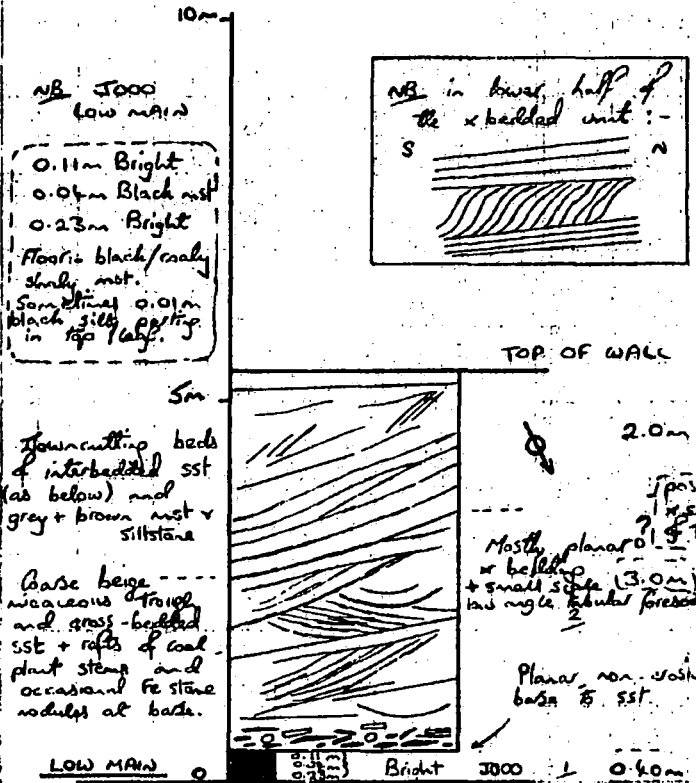 10m
NB J000
LOW MAIN
0.11m Bright
0.04m Black mst
0.23m Bright
Floor is black/coaly
shaly mst.
Sometimes 0.01m
black silt parting
in top leaf.
NB in lower half of
the x bedded unit :-
S N
TOP OF WALL
5m
Downcutting beds
of interbedded sst
(as below) and
grey + brown mst +
siltstone
Coarse beige
micaceous trough
and cross-bedded
sst + rafts of coal
plant stems and
occasional Fe stone
nodules at base.
2.0m
Mostly planar
x bedding
+ small scale (3.0m)
low angle tabular foresets
2
Planar, non-
base to sst.
LOW MAIN 0
Bright J000 1 0.40m